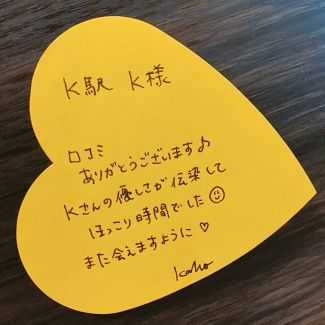 K駅 K様
口コミ
ありがとうございます♪
Kさんの優しさが伝染して
ほっこり時間でした☺
また会えますように♡
Kaho